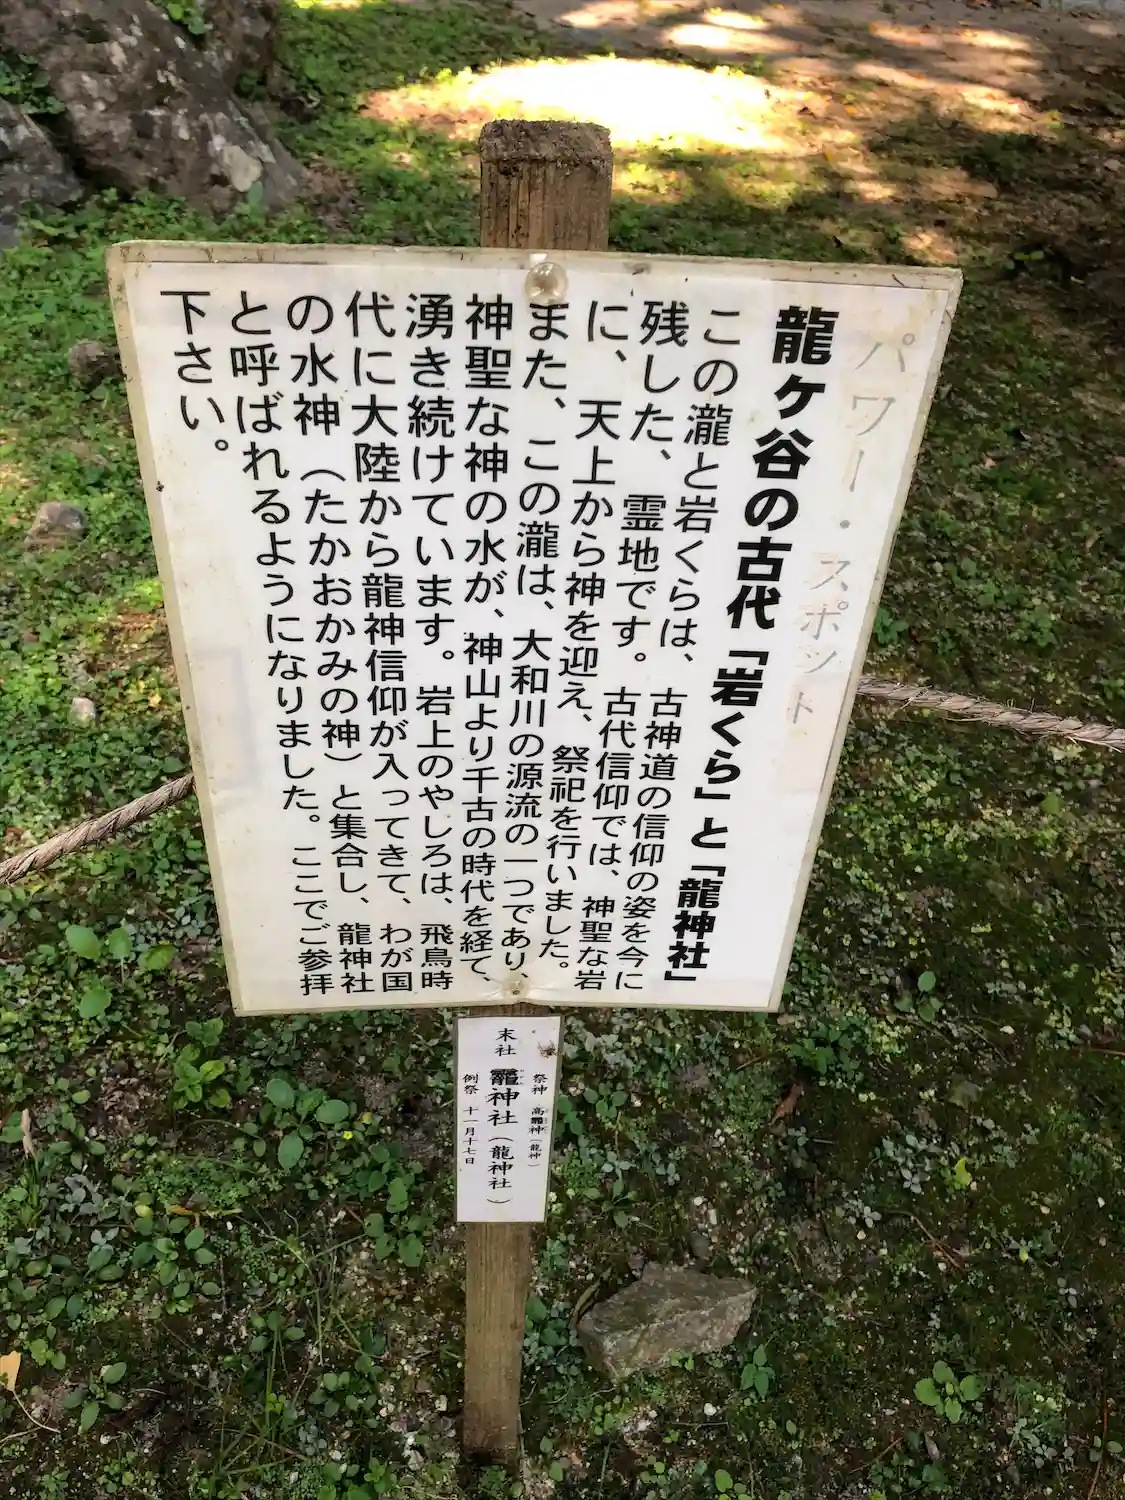 パワー・スポット
龍ヶ谷の古代「岩くら」と「龍神社」
この瀧と岩くらは、古神道の信仰の姿を今に
残した、霊地です。古代信仰では、神聖な岩
に、天上から神を迎え、祭祀を行いました。
また、この瀧は、大和川の源流の一つであり、
神聖な神の水が、神山より千古の時代を経て、
湧き続けています。岩上のやしろは、飛鳥時
代に大陸から龍神信仰が入ってきて、わが国
の水神（たかおかみの神）と集合し、龍神社
と呼ばれるようになりました。ここでご参拝
下さい。
祭神 高龗神（龍神）
末社 龗神社（龍神社）
例祭 十一月十七日